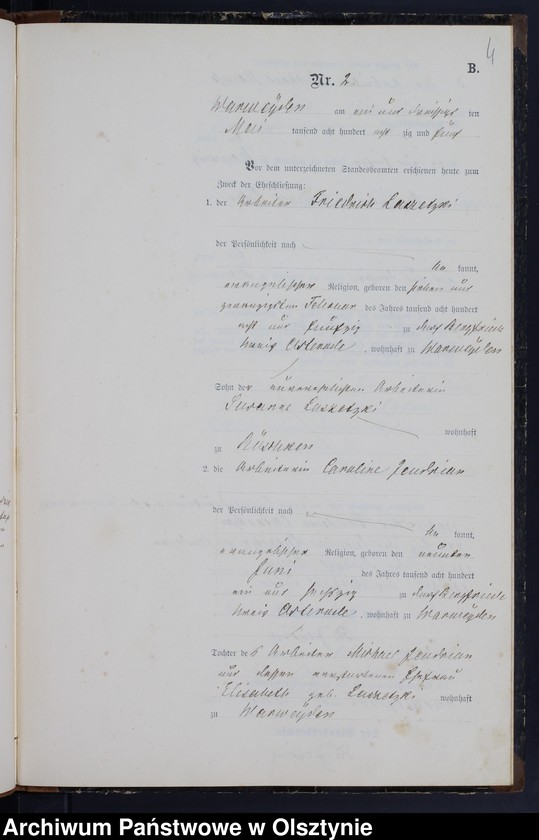 4
B.
Nr. 2
Warweyden am ein und dreißigsten
Mai tausend acht hundert achtzig und fünf
Vor dem unterzeichneten Standesbeamten erschienen heute zum
Zweck der Eheschließung:
1. der Arbeiter Friedrich
der Persönlichkeit nach
be kannt,
evangelischer Religion, geboren den sieben und
zwanzigsten Februar des Jahres tausend acht hundert
acht und fünfzig zu Dorf Bergfriede
Kreis Osterode, wohnhaft zu Warweyden
Sohn der unverehelichten Arbeiterin
Susanne
wohnhaft
zu
2. die Arbeiterin Caroline Jendrian
der Persönlichkeit nach
be kannt,
evangelischer Religion, geboren den neunten
Juni des Jahres tausend acht hundert
ein und sechzig zu Dorf Bergfriede
Kreis Osterode, wohnhaft zu Warweyden
Tochter des Arbeiter Michael Jendrian
und dessen verstorbenen Ehefrau
Elisabeth geb. wohnhaft
zu Warweyden
Archiwum Państwowe w Olsztynie